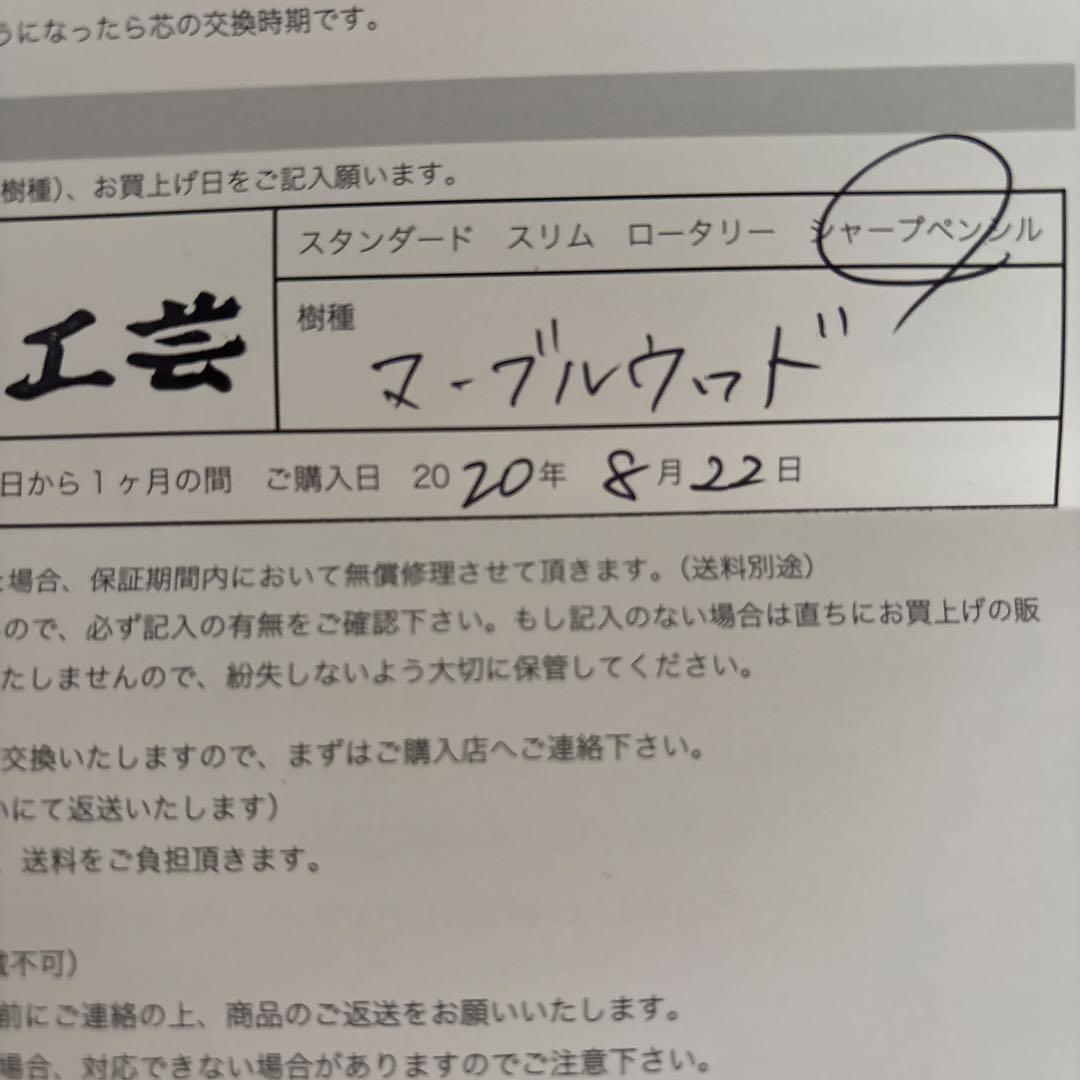 うになったら芯の交換時期です。
樹種)、お買上げ日をご記入願います。
工芸
スタンダード　スリム　ロータリー　シャープペンシル
樹種
マーブルウッド
日から1ヶ月の間　ご購入日　2020年 8月22日
場合、保証期間内において無償修理させて頂きます。(送料別途)
ので、必ず記入の有無をご確認下さい。もし記入のない場合は直ちにお買上げの販
たしませんので、紛失しないよう大切に保管してください。
交換いたしますので、まずはご購入店へご連絡下さい。
いにて返送いたします)
送料をご負担頂きます。
不可)
前にご連絡の上、商品のご返送をお願いいたします。
場合、対応できない場合がありますのでご注意下さい。